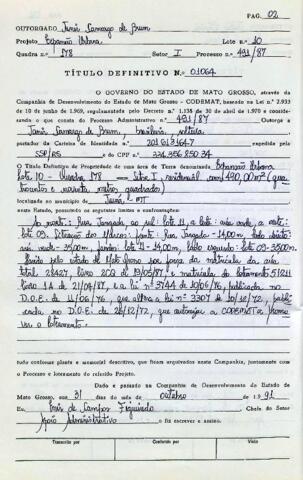 PAG. 02
OUTORGADO Janis Camargo de Brum
Projeto Expansão Urbana Lote n.º 10
Quadra n.º 178 Setor I Processo n.º 491/87
TÍTULO DEFINITIVO N.º 01064
O GOVERNO DO ESTADO DE MATO GROSSO, através da
Companhia de Desenvolvimento do Estado de Mato Grosso - CODEMAT, baseado na Lei n.º 2.933
de 10 de junho de 1.969, regulamentada pelo Decreto n.º 1.138 de 30 de abril de 1.970 e considerando
o que consta do Processo Administrativo n.º 491/87 outorga a
Janis Camargo de Brum, brasileira, solteira
portador da Carteira de Identidade n.º expedida pela
SSP/RS e do CPF n.º 334.856.850.34
o Título Definitivo de Propriedade de uma área de Terra denominada Expansão Urbana
Lote 10 - Quadra 178 - Setor I, residencial com 490,00 m² (qua
trocentos e noventa metros quadrados)
localizada no município de Juína - MT
neste Estado, possuindo os seguintes limites e confrontações:
ao norte: Rua Jangada, ao sul: lote 11, a leste: rua onde, a oeste:
lote 09. Situação dos Marcos: frente - Rua Jangada - 14,00m, lado direito:
35,00m, fundos: lote 11 - 14,00m, lado esquerdo: lote 09-35,00m.
Havido pelo estado de Mato Grosso por força da matrícula da área
total 28427, livro 2CQ de 19/05/87; e matrícula do loteamento 51211
livro 1A de 21/09/87, e a lei n.º 3744 de 10/06/76, publicada no
D.O.E. de 11/06/76, que altera a lei n.º 3307 de 10/12/72, publi
cada no D.O.E. de 26/12/72, que autorizou a CODEMAT a promo
ver o loteamento.
tudo conforme planta e memorial descritivo, que ficam arquivados nesta Companhia, juntamente com
o Processo e loteamento do referido Projeto.
Dado e passado na Companhia de Desenvolvimento do Estado de
Mato Grosso, aos 31 dias do mês de outubro de 1.991
Eu de Campos Figueiredo Chefe do Setor
Apoio Administrativo o fiz escrever e assino.
Transcrito por Conferido por Visto